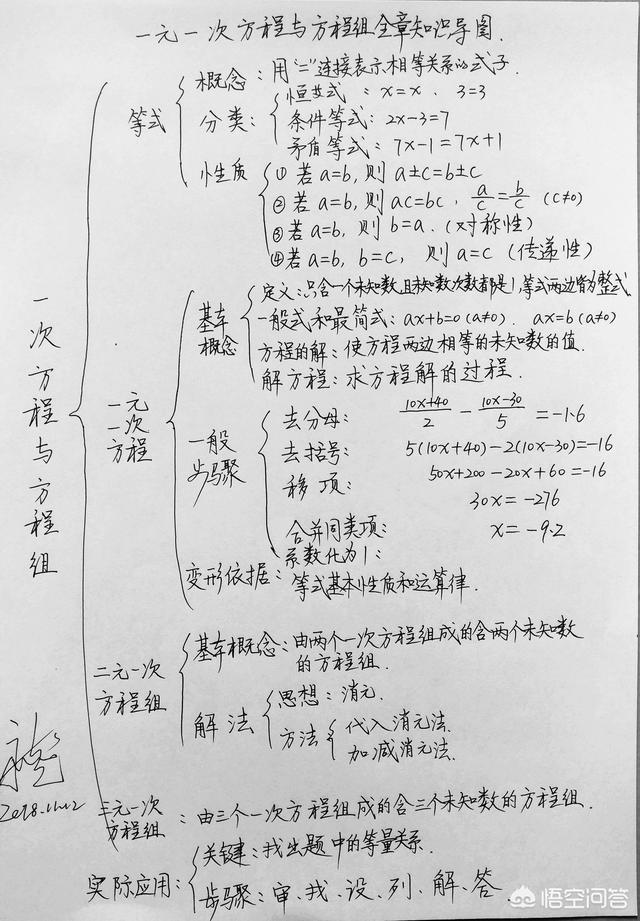 一元一次方程与方程组全章知识导图.
一次方程与方程组
等式
概念：用"="连接表示相等关系的式子.
分类：
恒等式：x=x、3=3
条件等式：2x-3=7
矛盾等式：7x-1=7x+1
性质
① 若 a=b, 则 a±c=b±c
② 若 a=b, 则 ac=bc, a/c=b/c (c≠0)
③ 若 a=b, 则 b=a. (对称性)
④ 若 a=b, b=c, 则 a=c (传递性)
一元一次方程
基本概念
定义：只含一个未知数且未知数次数都是1,等式两边皆为整式.
一般式和最简式：ax+b=0(a≠0). ax=b(a≠0)
方程的解：使方程两边相等的未知数的值.
解方程：求方程解的过程.
一般步骤
去分母： (10x+40)/2 - (10x-30)/5 =-1.6
去括号： 5(10x+40)-2(10x-30)=-16
移项： 50x+200-20x+60=-16
30x=-276
合并同类项： x=-9.2
系数化为1：
变形依据：等式基本性质和运算律.
二元一次方程组
基本概念：由两个一次方程组成的含两个未知数
的方程组.
解法
思想：消元.
方法
代入消元法.
加减消元法.
三元一次方程组：由三个一次方程组成的含三个未知数的方程组.
实际应用：
关键：找出题中的等量关系.
步骤：审、找、设、列、解、答.
2018.11.12
悟空问答